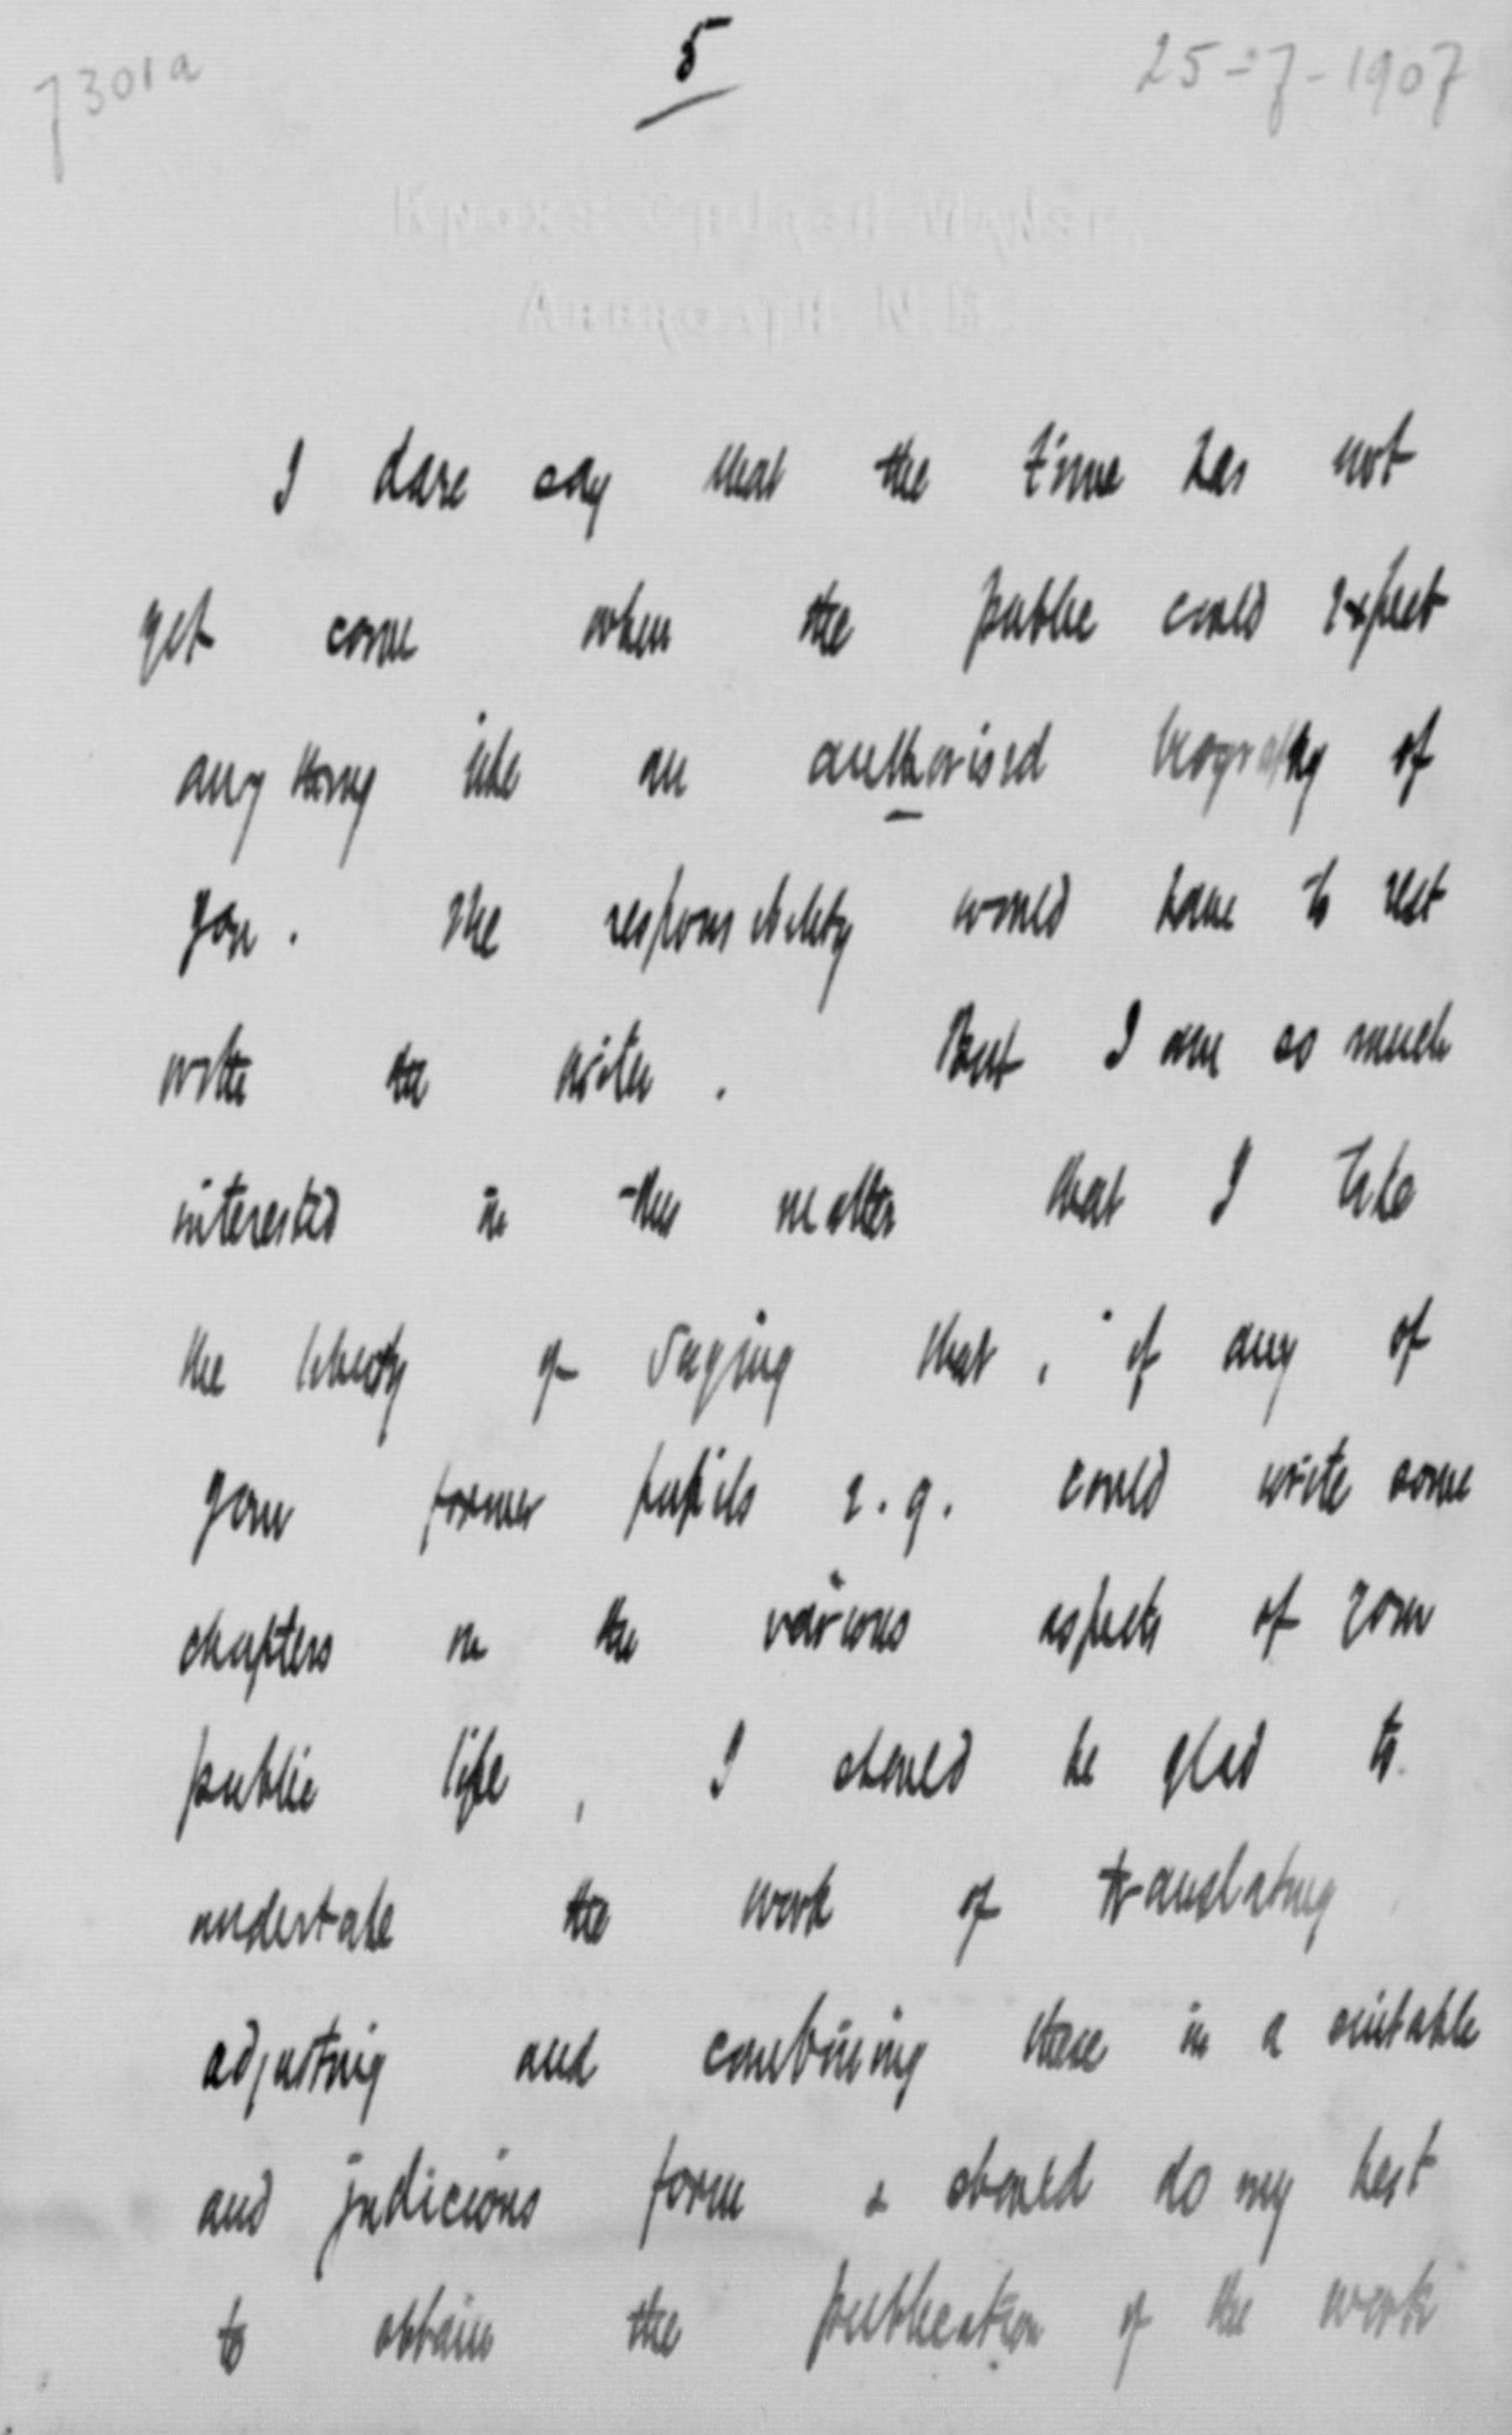 7301a
5
25-7-1907
I dare say that the time has not
yet come when the public could expect
anything like an authorised biography of
you. The responsibility would have to rest
with the writer. But I am so much
interested in the matter that I take
the liberty of saying that, if any of
your former pupils e.g. could write some
chapters on the various aspects of your
public life, I should be glad to
undertake the work of translating
adjusting and combining these in a suitable
and judicious form & should do my best
to obtain the publication of the work